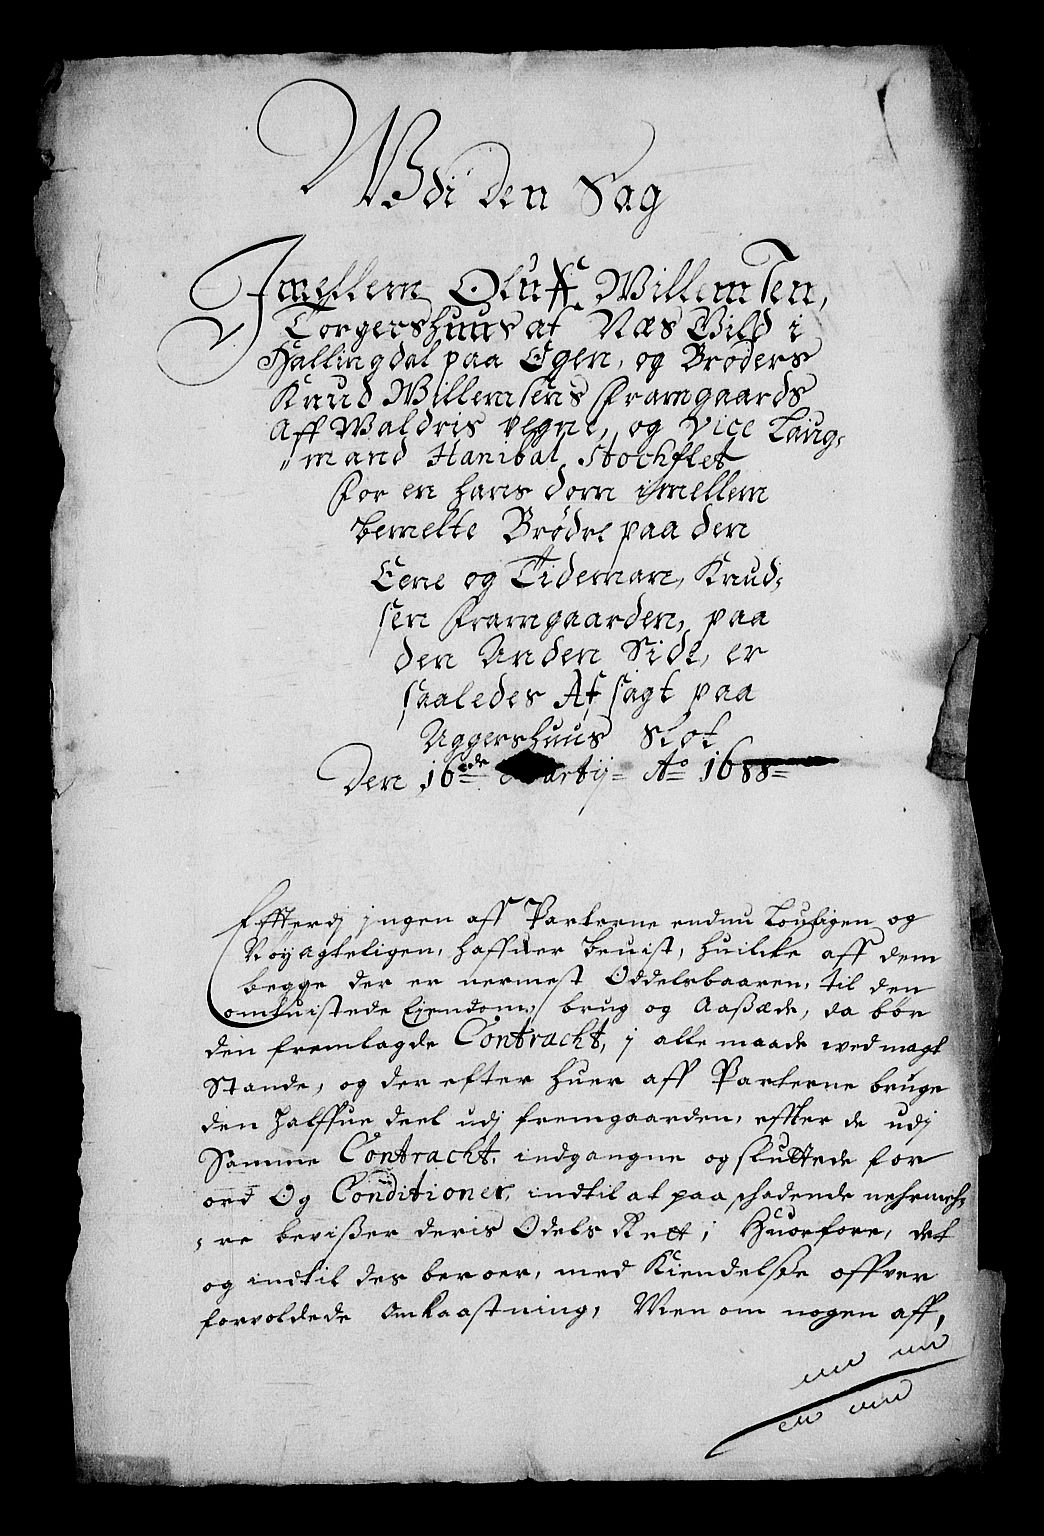 Udi den Sag
Imellem Oluff Willemsen,
Torgershuus af Næs Gield i
Hallingdal paa Egen, og Brøders
Knud Willemsens Framgaards
aff Waldris vegne, og Vice Laug-
mand Hanibal Stochflet
for en hans dom imellem
bemelte Brødre paa den
Eene og Tideman Knud-
sen Framgaarden, paa
den Anden Side, er
saaledes Afsagt paa
Aggershuus Slot
Den 16de Martij Ao 1688
Efterdj jngen aff Parterne endnu Loufligen og
Nøyagteligen, haffuer beuist, huilcke aff dem
begge der er nermest Oddelsbaaren, til den
omtuistede Eiendom, brug og Aaßæde, da bør
den fremlagde Contracht, j alle maade wed magt
Stande, og der efter huer aff Parterne bruge
den halffue deel udj fremgaarden, effter de udj
Samme Contracht, indgangne og sluttede for
ord Og Conditioner, indtil at paa schadende nehrmeh-
re bevißer deris Odels Rett; Huorfore, det
og indtil des beroer, med Kiendelse offver
forvoldede Omkaastning, Men om nogen aff,